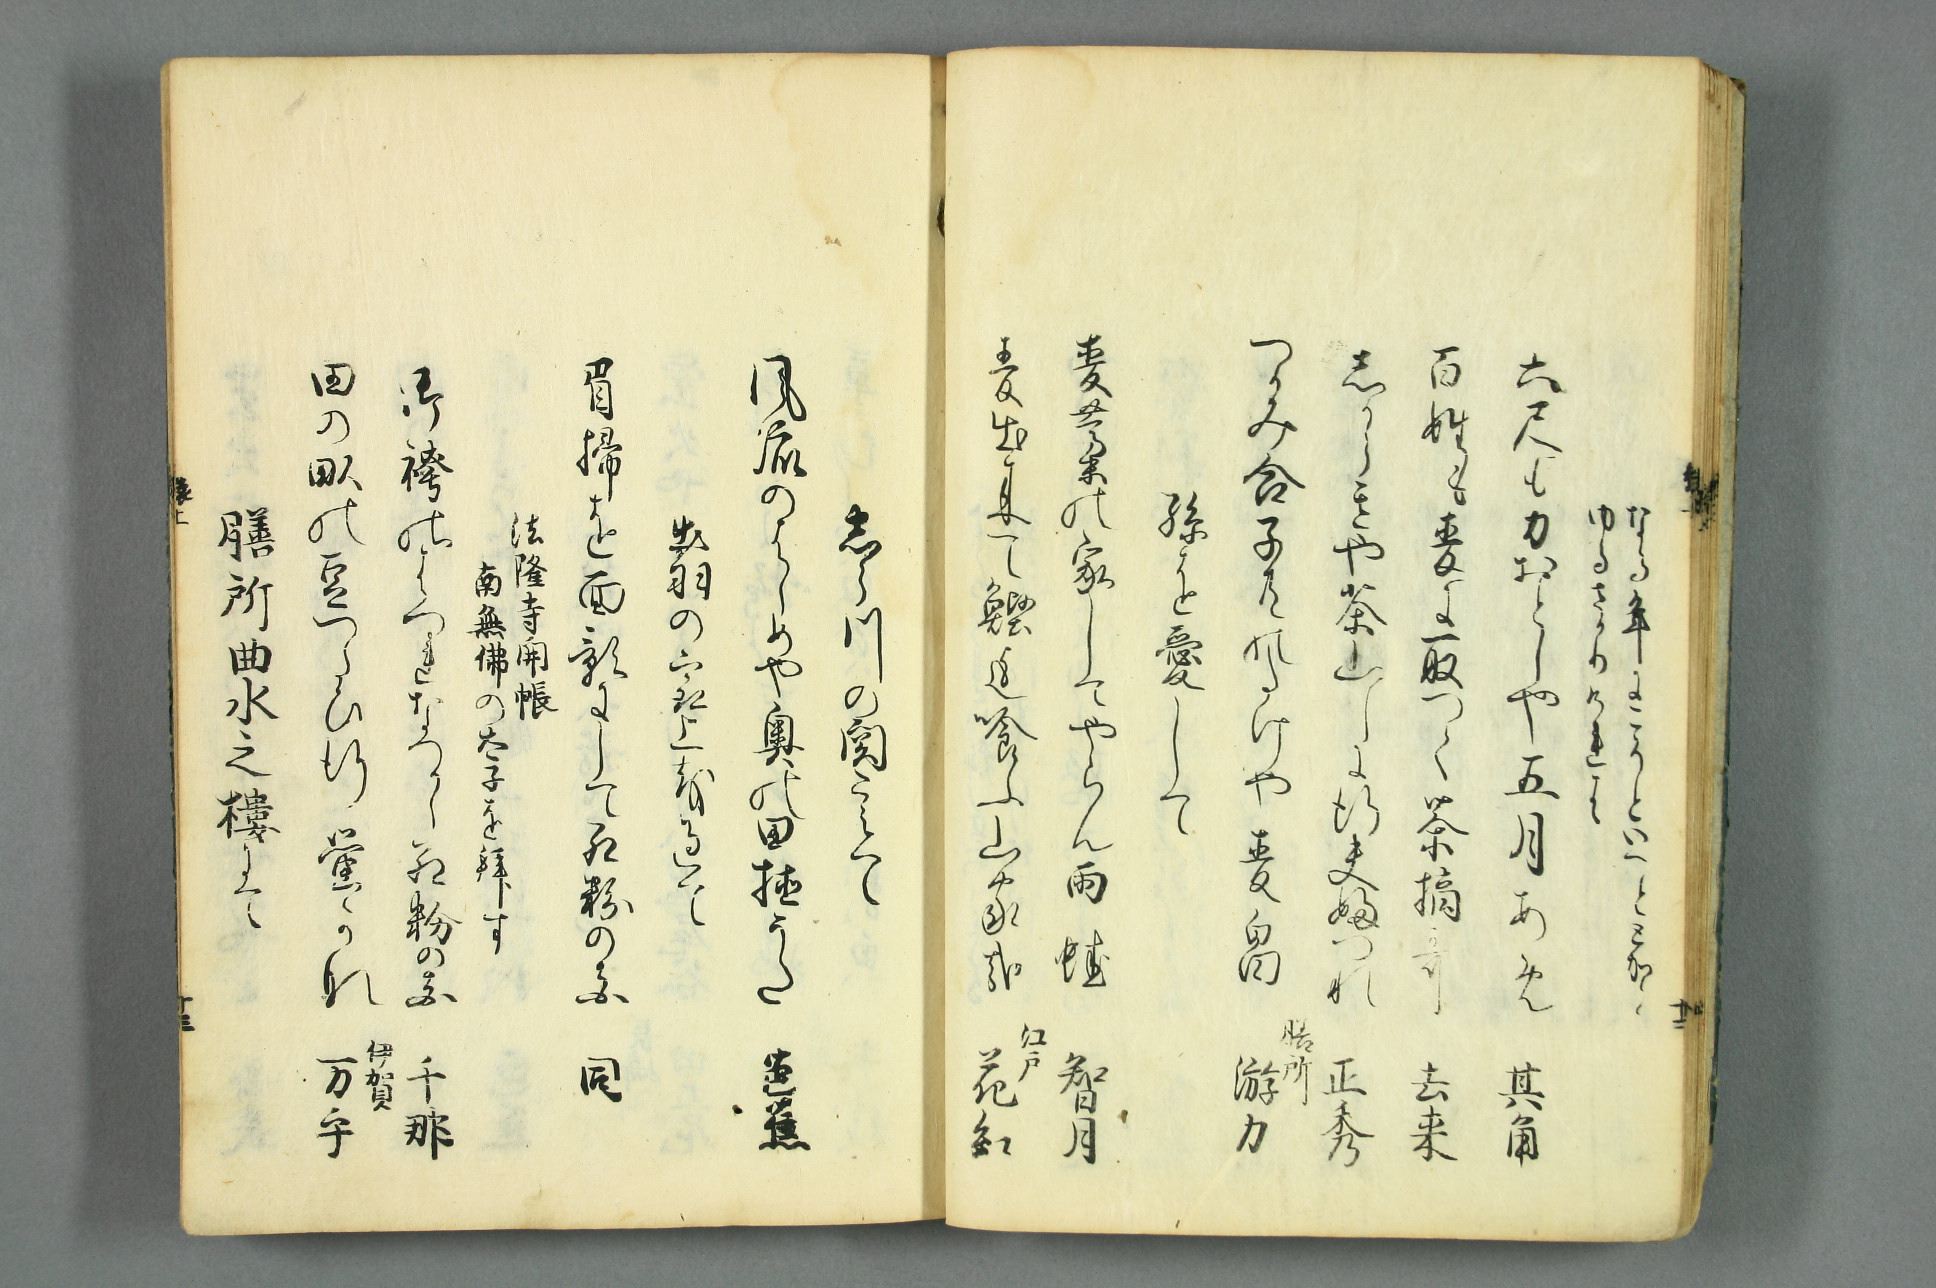 なる年にこそといへど、とかく
ゆるさゞりければ
六尺も力おとしや五月あめ　其角
百姓も麦に取つく茶摘哥　去来
しがらきや茶山しに行夫婦づれ　正秀
つかみ合子共のたけや麦畠　膳所　游刀
孫を愛して
麦藁の家してやらん雨蛙　智月
麦出来て鰹迄喰ふ山家哉　江戸　花紅
しら川の関こえて
風流のはじめや奥の田植うた　芭蕉
出羽の最上を過て
眉掃を面影にして紅粉の花　同
法隆寺開帳
南無佛の太子を拝す
御袴のはづれなつかし紅粉の花　千那
田の畝の豆つたひ行螢かな　伊賀　万乎
膳所曲水之樓にて
猿上
十三